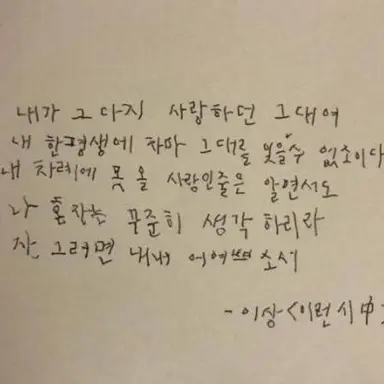 내가 그다지 사랑하던 그대여
내 한평생에 차마 그대를 잊을수 없소이다
내 차례에 못 올 사랑인줄은 알면서도
나 혼자는 꾸준히 생각 하리라
자 그러면 내내 어여쁘소서
- 이상 <이런 시 中>